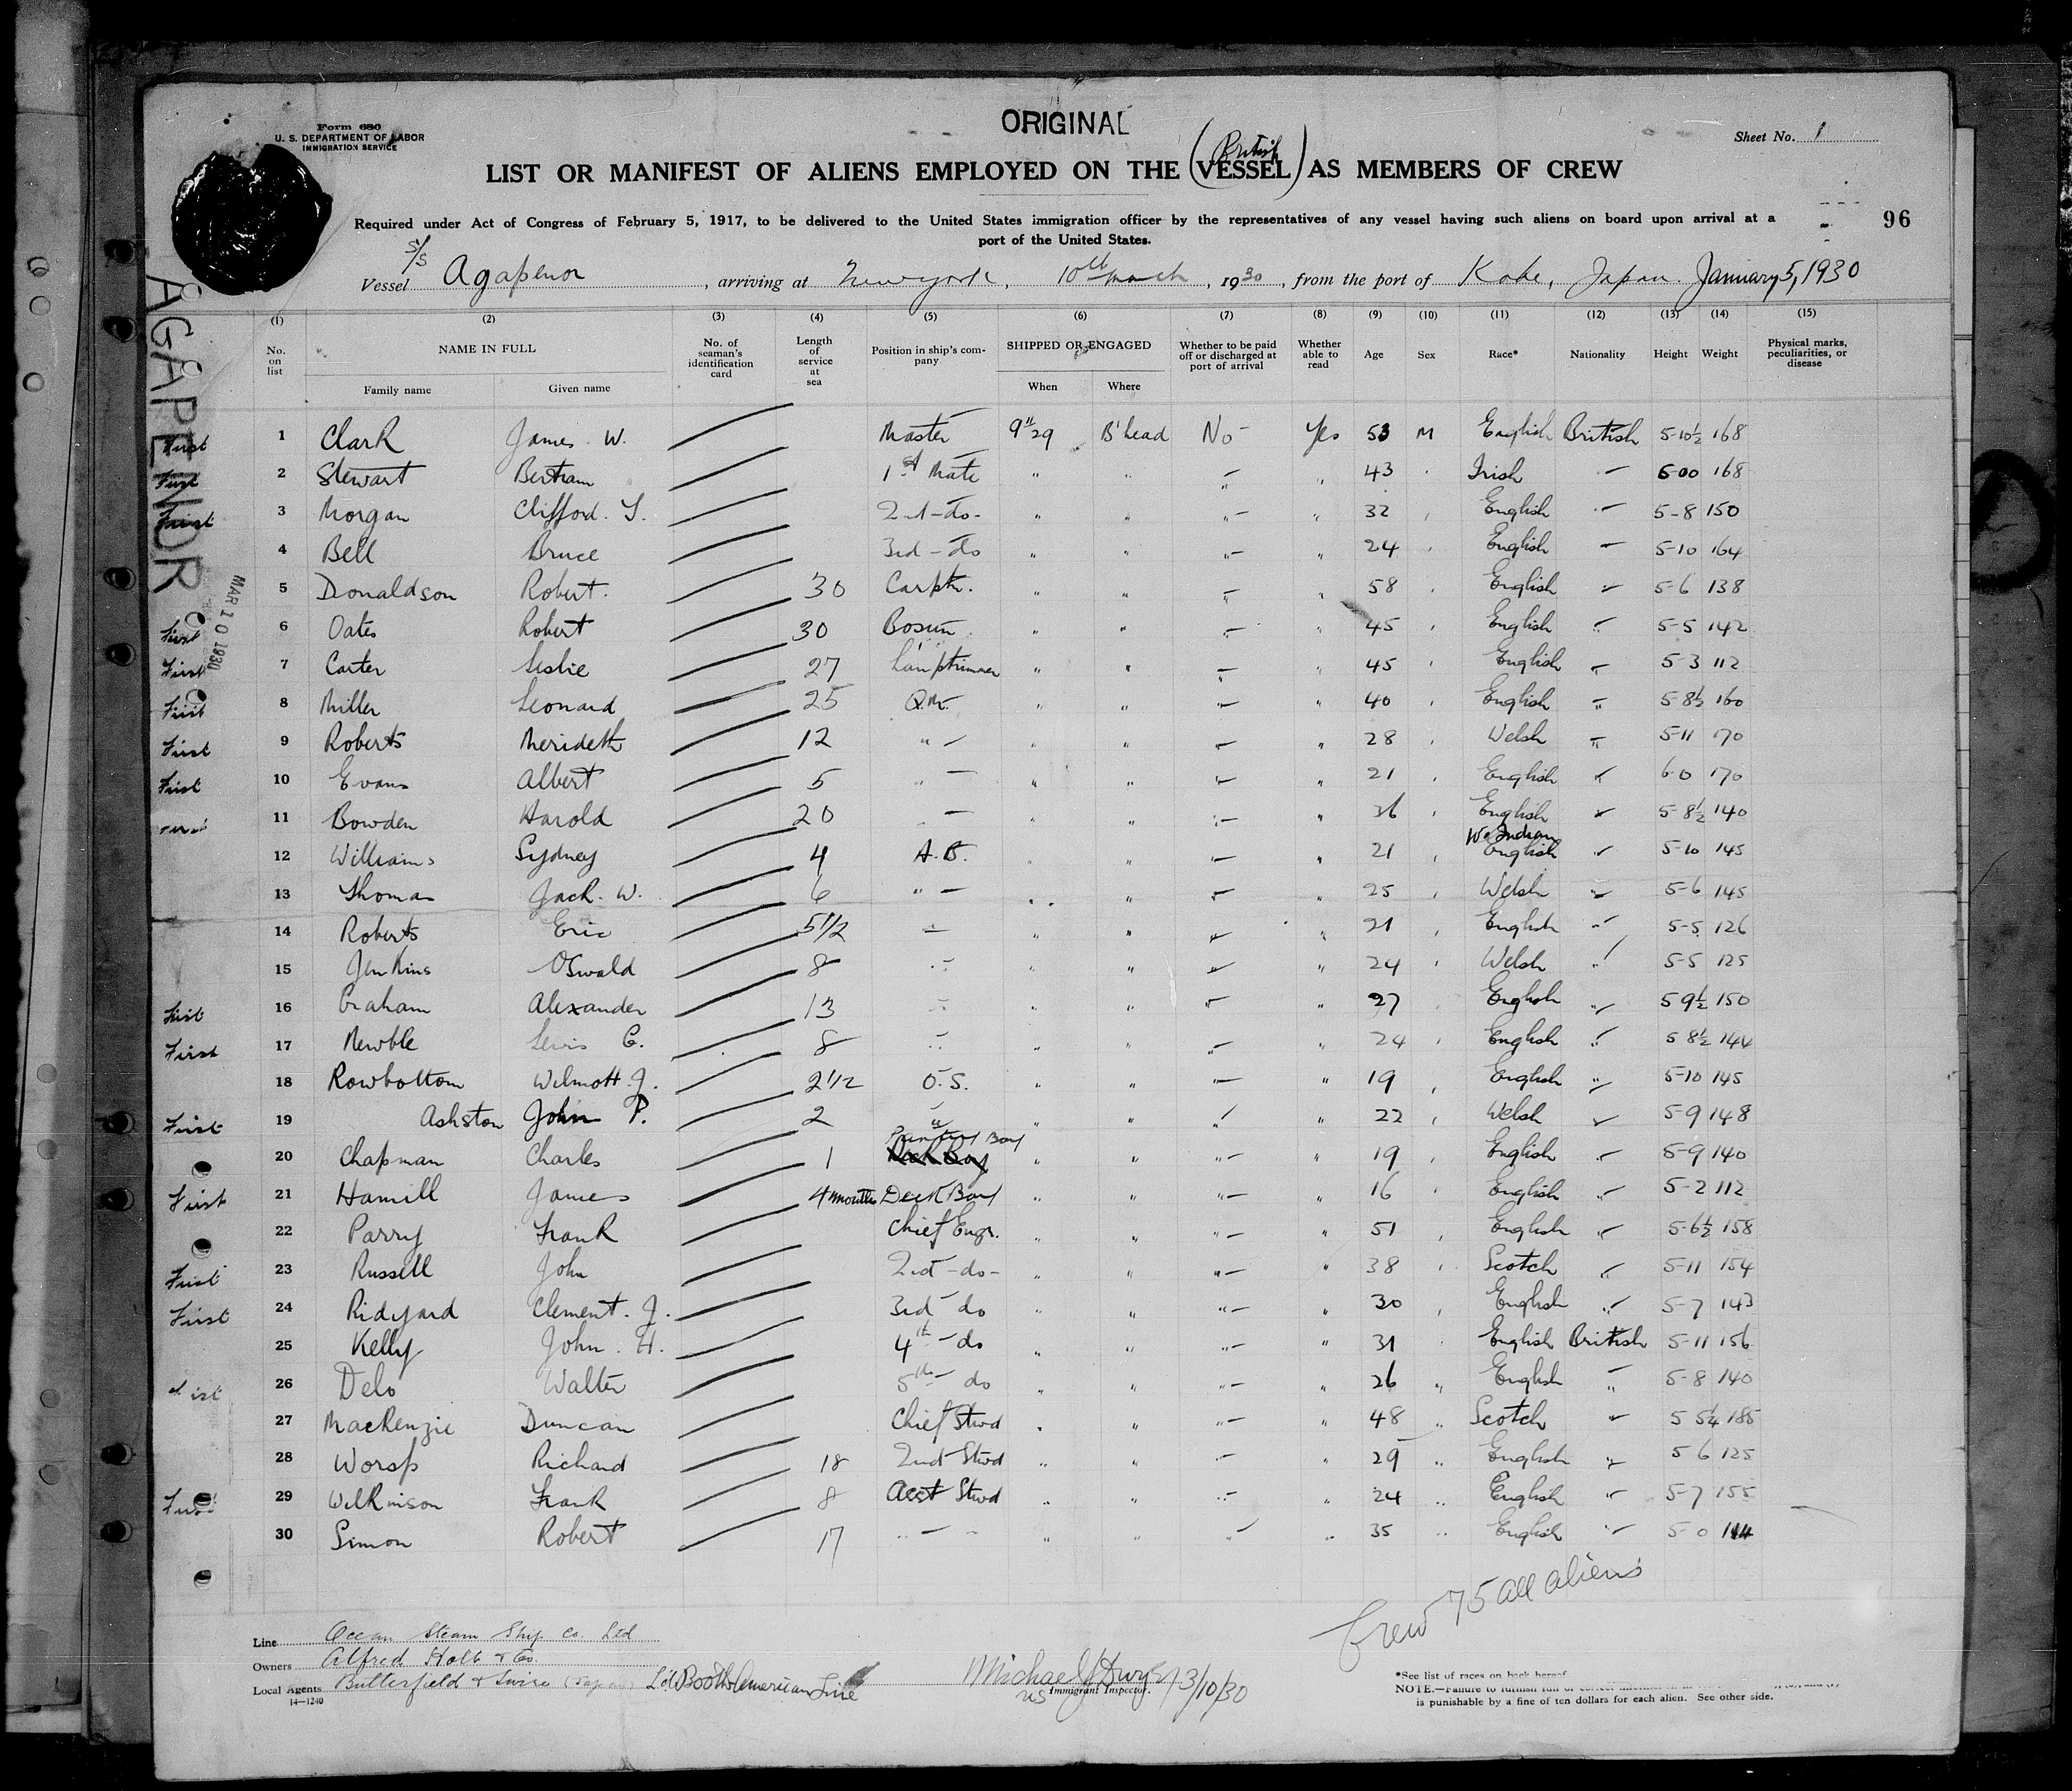 Form 680
U. S. DEPARTMENT OF LABOR
IMMIGRATION SERVICE
ORIGINAL
Sheet No. 1
British
LIST OR MANIFEST OF ALIENS EMPLOYED ON THE (VESSEL) AS MEMBERS OF CREW
Required under Act of Congress of February 5, 1917, to be delivered to the United States immigration officer by the representatives of any vessel having such aliens on board upon arrival at a
port of the United States.
96
S/S
Vessel Agapenor, arriving at New york, 10th March, 1930, from the port of Kobe, Japan. January 5, 1930
AGAPENOR
MAR 10 1930
(1) (2) (3) (4) (5) (6) (7) (8) (9) (10) (11) (12) (13) (14) (15)
No. on list NAME IN FULL No. of seaman's identification card Length of service at sea Position in ship's company SHIPPED OR ENGAGED Whether to be paid off or discharged at port of arrival Whether able to read Age Sex Race* Nationality Height Weight Physical marks, peculiarities, or disease
Family name Given name When Where
First 1 Clark James W. Master 9" 29 B'head No - Yes 53 M English British 5-10½ 168
First 2 Stewart Bertram 1st Mate " " " - " 43 Irish - 6-00 168
First 3 Morgan Clifford. 2nd -do- " " " - " 32 English " - 5-8 150
4 Bell Bruce 3rd - do " " " - " 24 English - 5-10 164
5 Donaldson Robert. 30 Carptr. " " " - " 58 English " 5-6 138
First 6 Oates Robert 30 Bosun " " " - " 45 English " 5-5 142
First 7 Carter Leslie 27 Lamptrimmer " " " - " 45 English " 5-3 112
First 8 Miller Leonard 25 Q.M. " " " - " 40 English " 5-8½ 160
First 9 Roberts Merideth 12 " - " " " - " 28 Welsh " 5-11 170
First 10 Evans Albert 5 " - " " " - " 21 English " 6-0 170
First 11 Bowden Harold 20 " - " " " - " 36 English " 5-8½ 140
W. Indian
12 Williams Sydney 4 A.B. " " " - " 21 English " 5-10 145
13 Thomas Jack. W. 6 " - " " " - " 25 Welsh " 5-6 145
14 Roberts Eric 5 1/2 " - " " " - " 21 English " 5-5 126
15 Jenkins Oswald 8 " - " " " - " 24 Welsh " 5-5 125
First 16 Graham Alexander 13 " - " " " - " 27 English " 5 9½ 150
First 17 Newble Lewis C. 8 " - " " " - " 24 English " 5 8½ 144
18 Rowbottom Wilmott. J. 2 1/2 O.S. " " " - " 19 English " 5-10 145
First 19 Ashston John P. 2 " " " " - " 22 Welsh " 5-9 148
Boy
20 Chapman Charles 1 Deck Boy " " " - " 19 English " 5-9 140
First 21 Hamill James 4 months Deck Boy " " " - " 16 English " 5-2 112
22 Parry Frank Chief Engr. " " " - " 51 English " 5-6½ 158
First 23 Russell John 2nd -do- " " " - " 38 Scotch " 5-11 154
First 24 Ridyard Clement. J. 3rd do " " " - " 30 English " 5-7 143
25 Kelly John. H. 4th - do " " " - " 31 English British 5-11 156
First 26 Delo Walter 5th - do " " " - " 26 " English " 5-8 140
27 MacKenzie Duncan Chief Stwd " " " - " 48 " Scotch " 5 5¼ 185
28 Worsp Richard 18 2nd Stwd " " " - " 29 " English " 5 6 125
First 29 Wilkinson Frank 8 Asst Stwd " " " - " 24 " English " 5-7 155
30 Simon Robert 17 " - " " " " - " 35 " English " 5-0 114
Crew 75 all aliens
Line Ocean Steam Ship Co. Ltd
Owners Alfred Holt & Co.
Local Agents Butterfield & Swire (Japan) Booth American Line
14-1240
Michael J Dwyer 3/10/30
US Immigrant Inspector.
*See list of races on back hereof
NOTE.—Failure to furnish full or correct
is punishable by a fine of ten dollars for each alien. See other side.